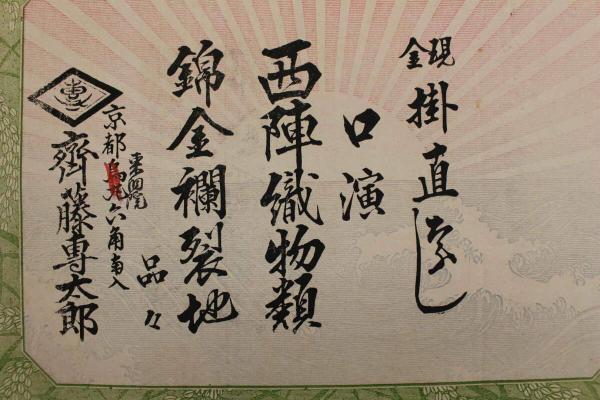 現金
掛直なし
口演
西陣織物類
錦金襴裂地
品々
東洞院
京都烏丸六角南入
齊藤専太郎